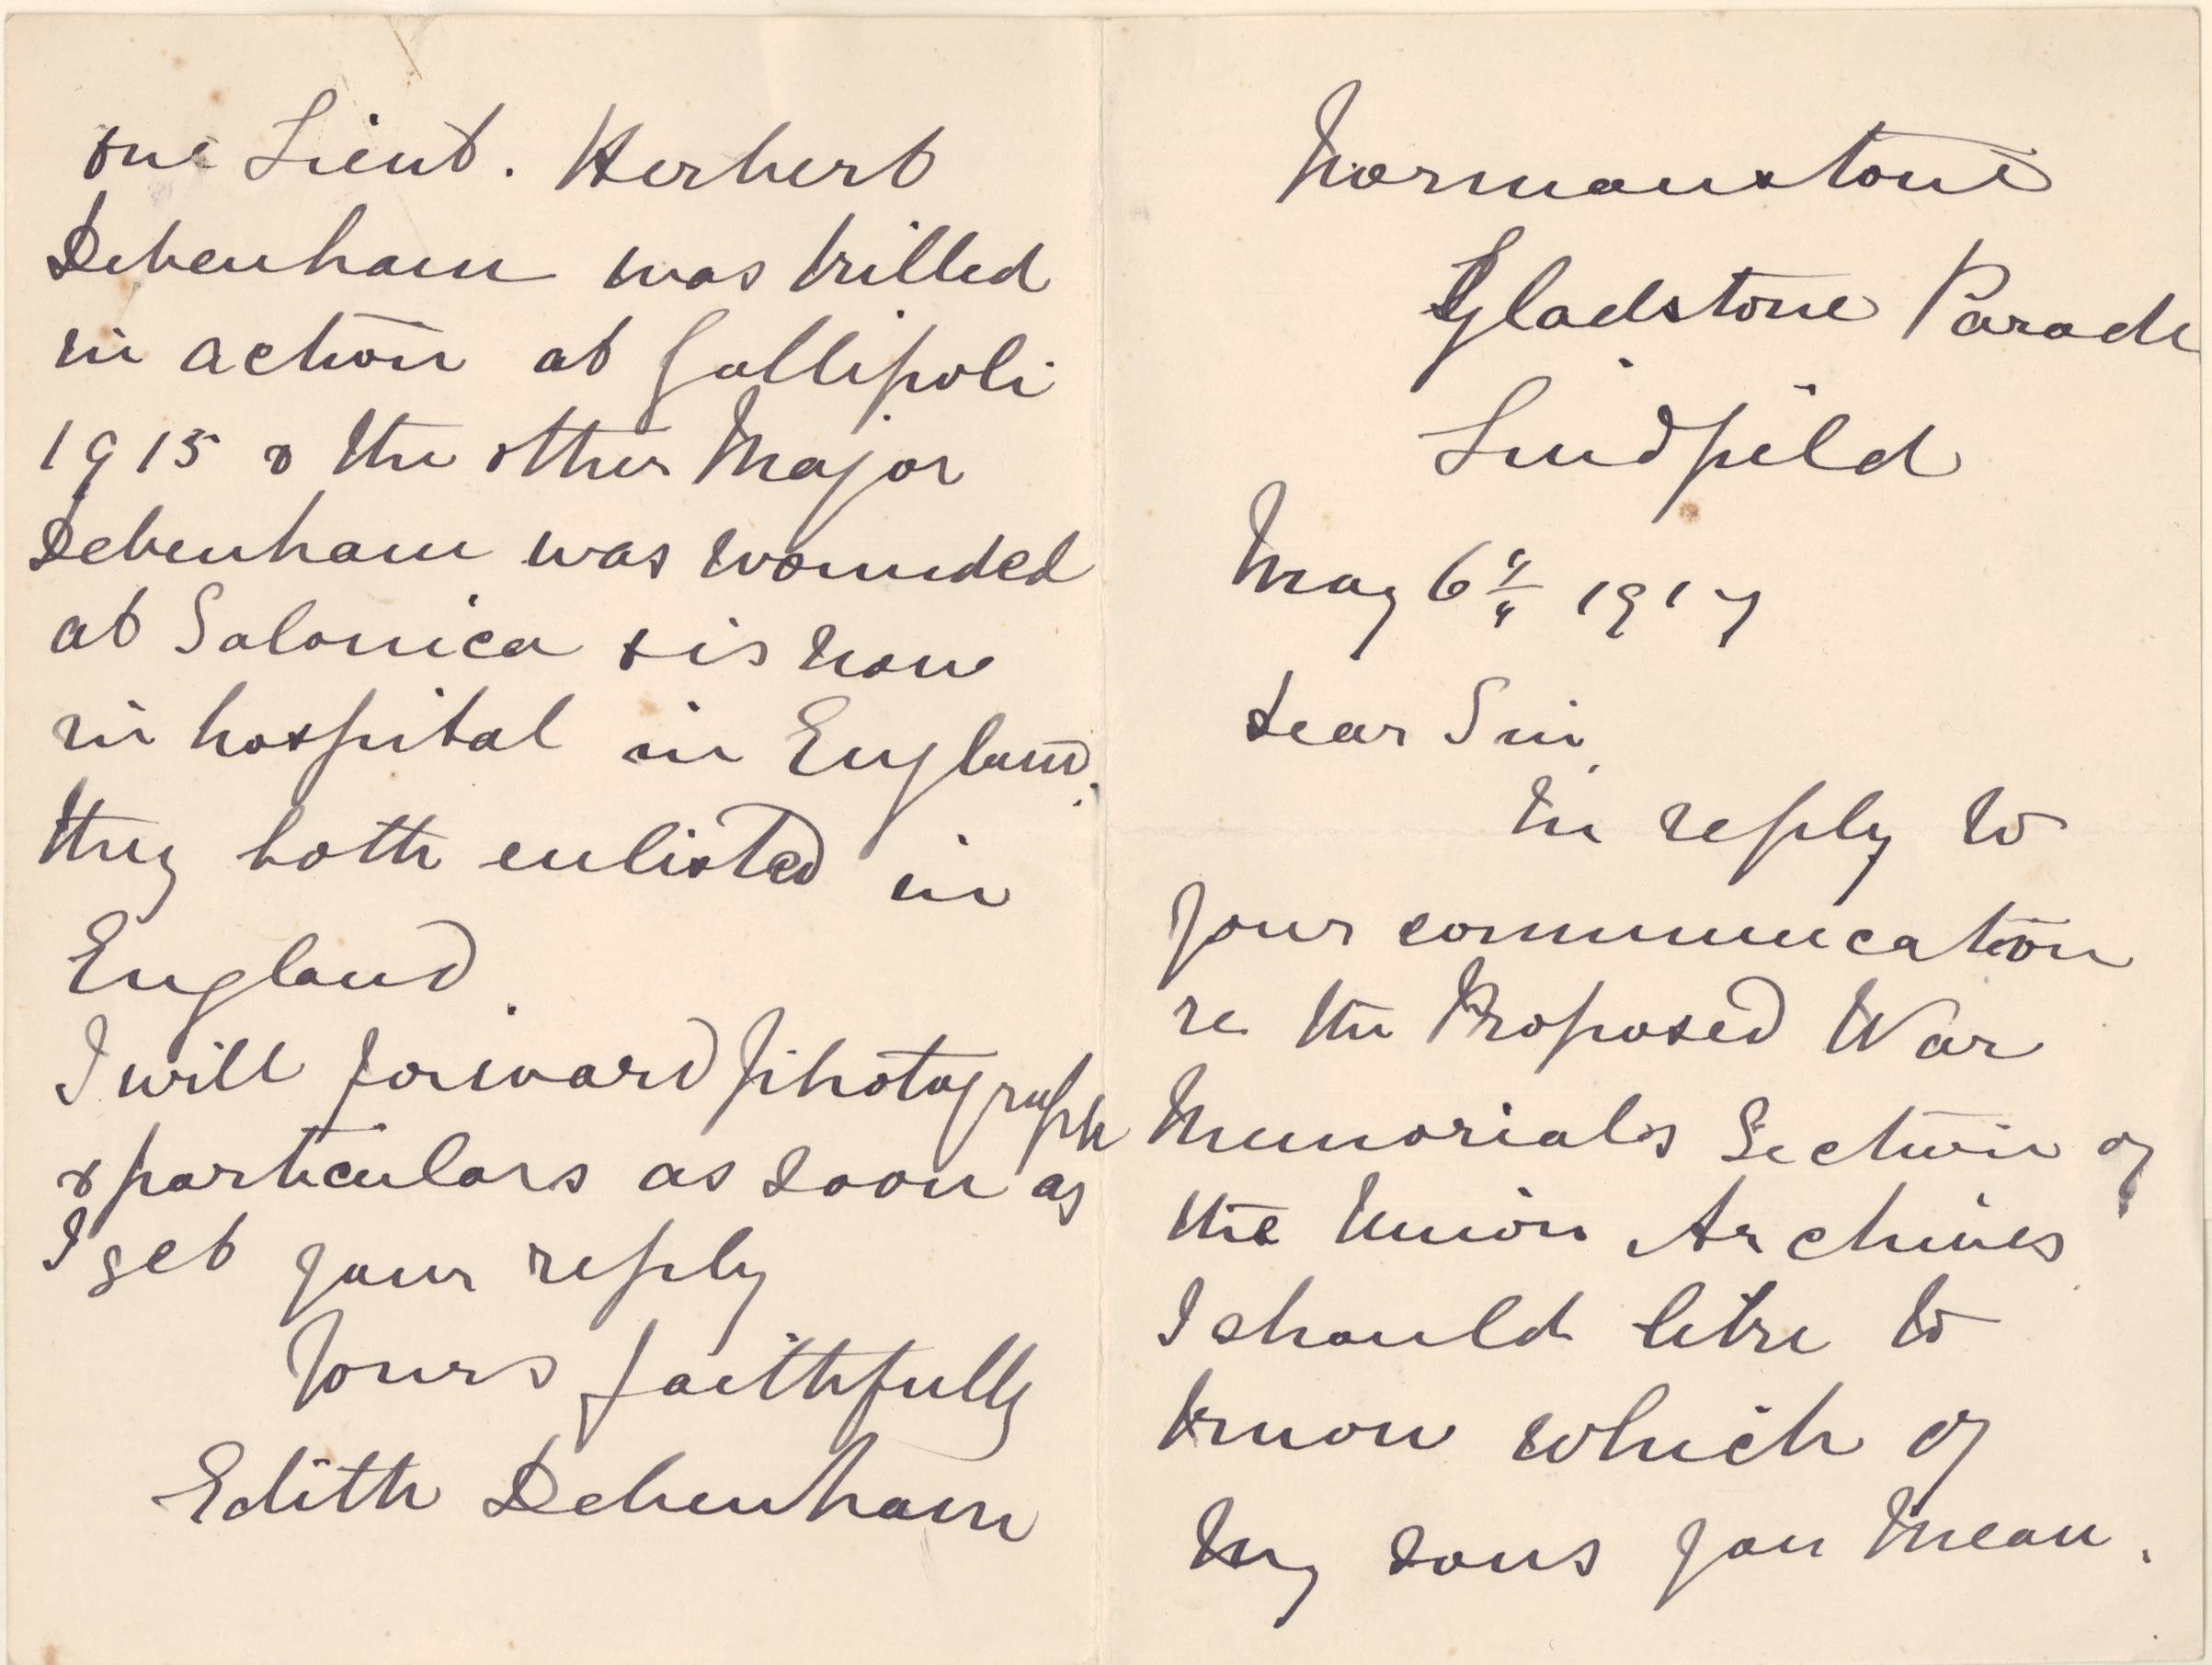 Normanstone
Gladstone Parade
Lindfield
May 6th 1917
Dear Sir,
In reply to
your communication
re the Proposed War
Memorials Section of
the Union Archives
I should like to
know which of
my sons you mean.
one Lieut. Herbert
Debenham was killed
in action at Gallipoli
1915 & the other Major
Debenham was wounded
at Salonica & is now
in hospital in England.
they both enlisted in
England.
I will forward photograph
& particulars as soon as
I get your reply
Yours faithfully
Edith Debenham